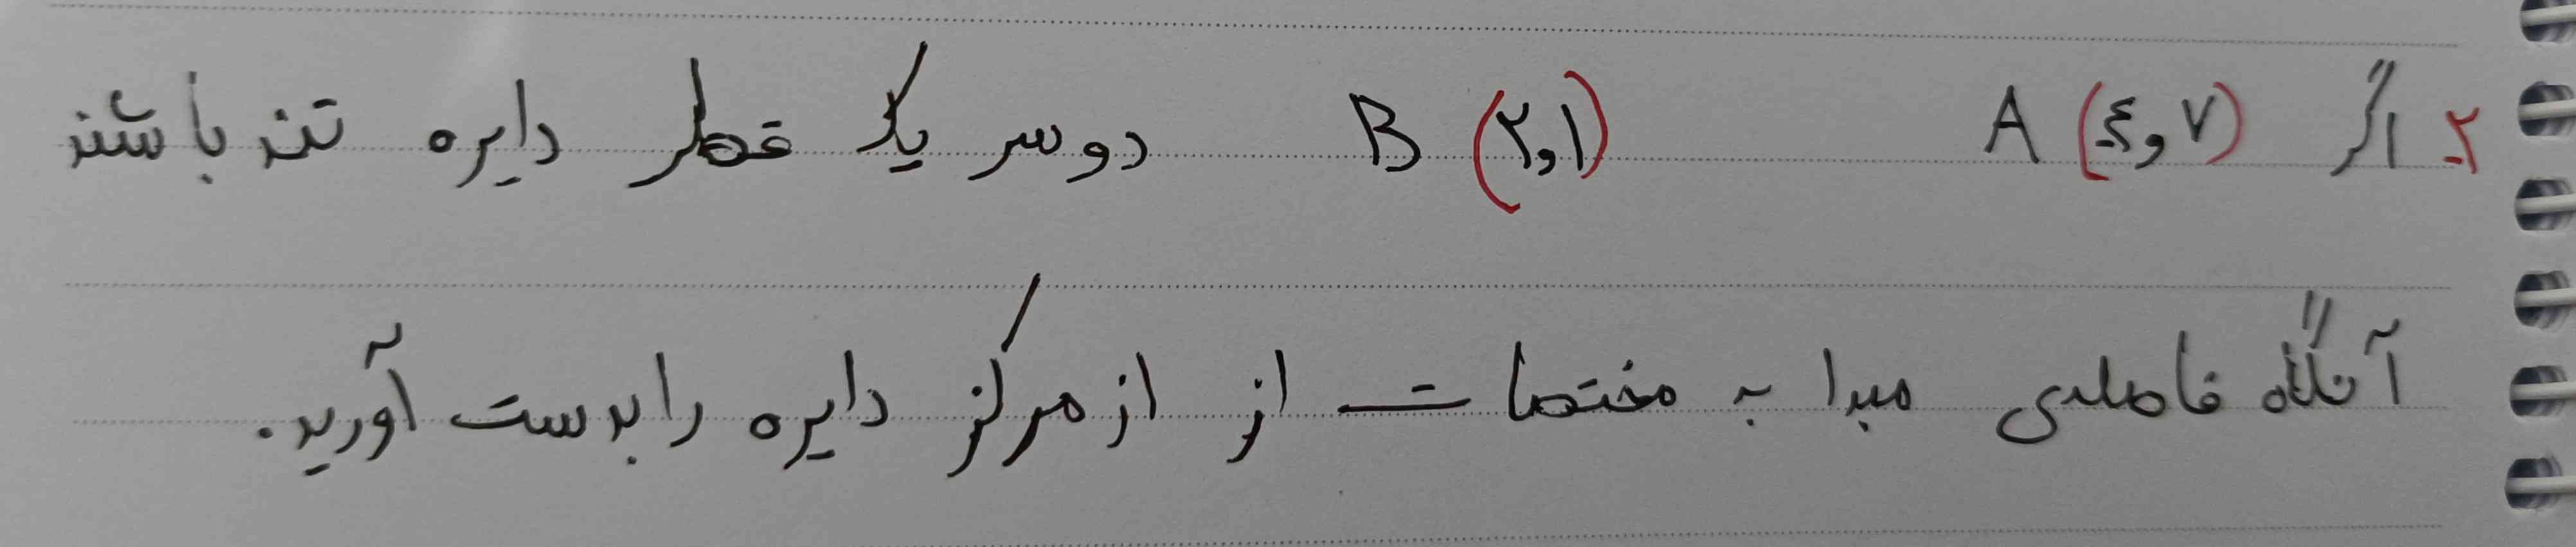 ۲. اگر A (٤ و ۷) B (۲ و ۱) دو سر یک قطر دایره تند باشند
آنگاه فاصلهی مبدا به مختصات از از مرکز دایره را بدست آورید.